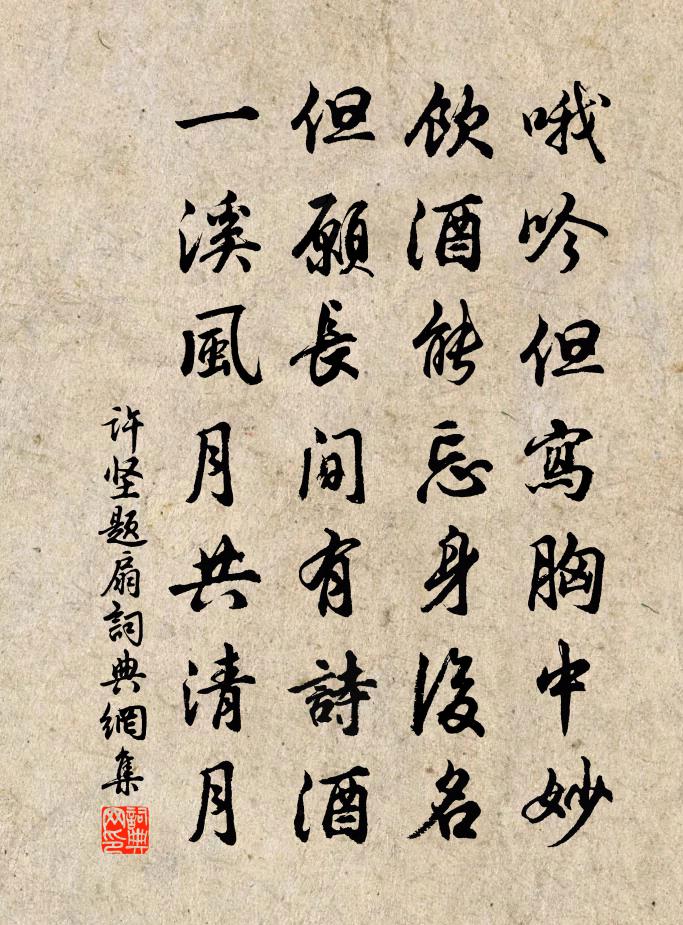 哦吟但寫胸中妙
飲酒能忘身後名
但願長閒有詩酒
一溪風月共清月
许坚题扇詞典網集
詞典網印